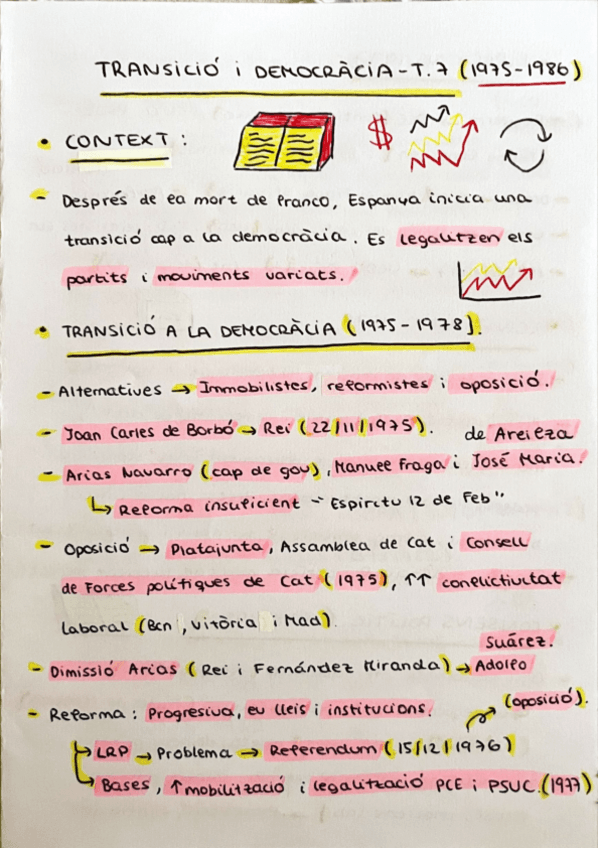 TRANSICIÓ i DEMOCRÀCIA - T.7 (1975-1986)
• CONTEXT:
$
- Després de la mort de Franco, Espanya inicia una
transició cap a la democràcia. Es legalitzen els
partits i moviments variats.
• TRANSICIÓ A LA DEMOCRÀCIA (1975-1978).
- Alternatives → Immobilistes, reformistes i oposició.
- Joan Carles de Borbó → Rei (22/11/1975).
de Areilza
- Arias Navarro (cap de gov), Manuel Fraga i José María.
↳ Reforma insuficient - "Espiritu 12 de Feb"
- Oposició → Platajunta, Assamblea de Cat i Consell
de Forces polítiques de Cat (1975), ↑↑ conflictivitat
laboral (Bcn, Vitòria i Mad).
Suárez.
- Dimissió Arias (Rei i Fernández Miranda) → Adolfo
- Reforma: Progresiva, eu lleis i institucions. (oposició).
↳ LRP → Problema → Referendum (15/12/1976)
↳ Bases, ↑ mobilització i legalització PCE i PSUC. (1977)